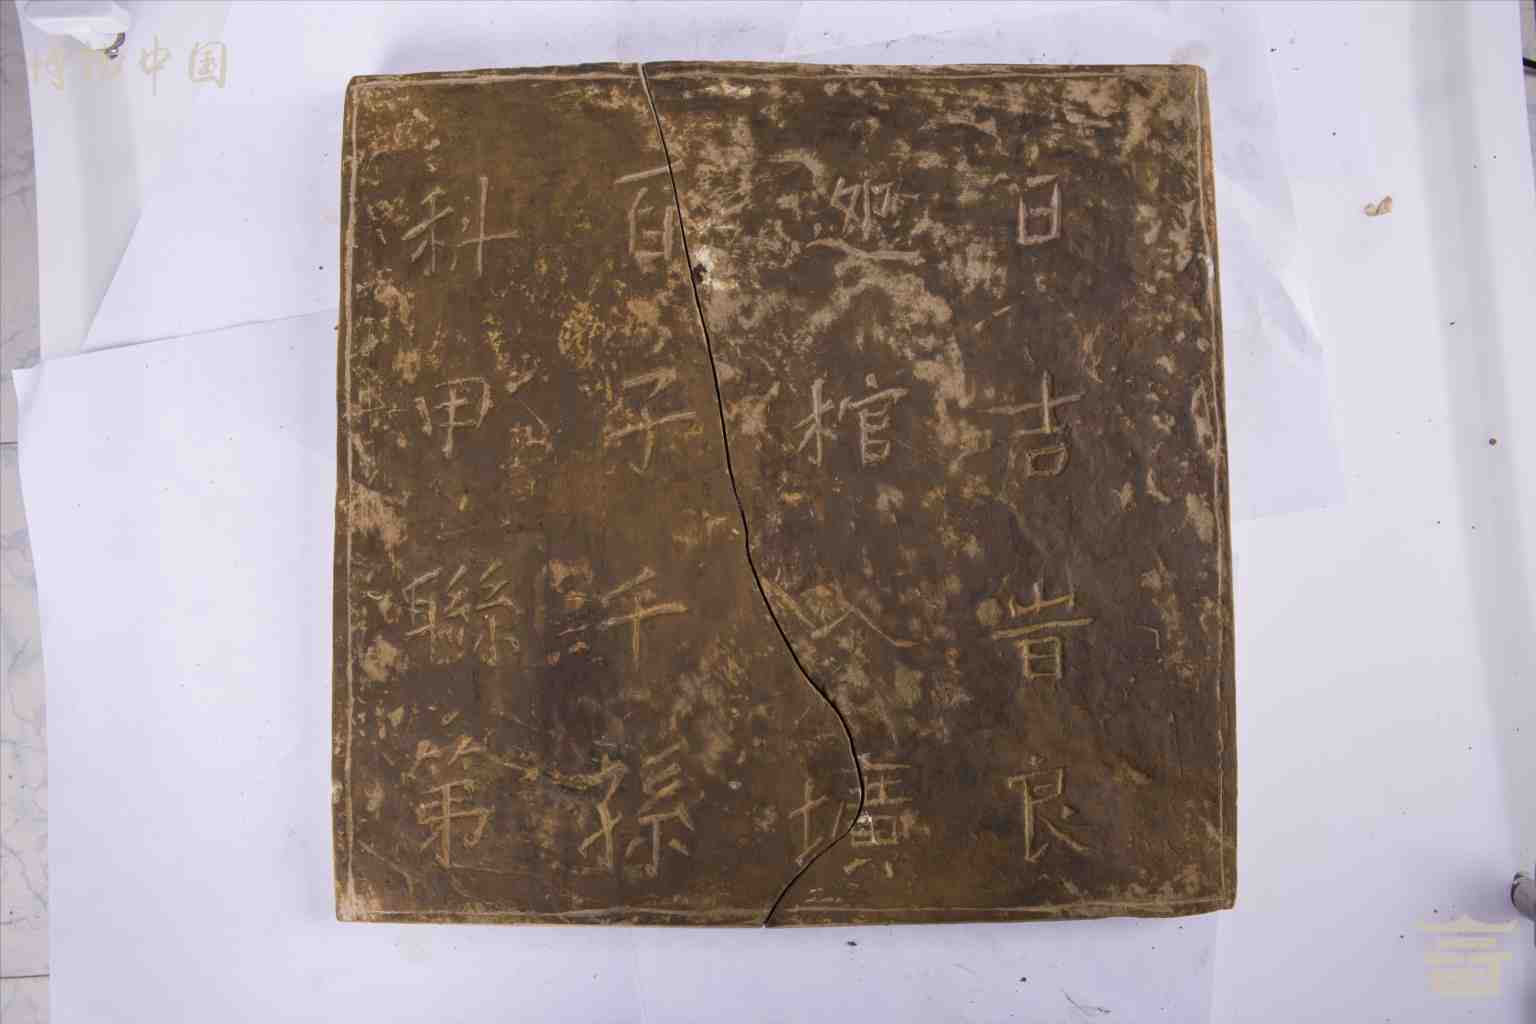 日吉旹良
迎棺入壙
百子千孫
科甲聯第
博物中国